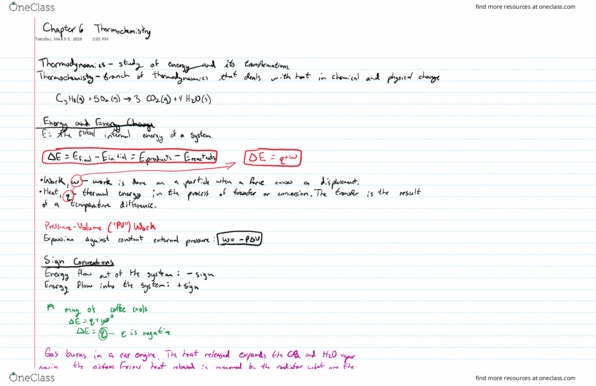 OneClass
find more resources at oneclass.com
Chapter 6 Thermochemistry
Tuesday, March 5, 2019 1:01 PM
Thermodynamics - study of energy and its transformations
Thermochemistry - branch of thermodynamics that deals with heat in chemical and physical change
C₃H₈(g) + 5O₂(g) → 3 CO₂(g) + 4 H₂O(g)
Energy and Energy Change
E = the total internal energy of a system.
ΔE = Efinal - Einitial = Eproducts - Ereactants
ΔE = q+w
• Work, w - work is done on a particle when a force causes a displacement.
• Heat, q - thermal energy in the process of transfer or conversion. The transfer is the result
of a temperature difference.
Pressure-Volume ("PV") Work
Expansion against constant external pressure: w = -PΔV
Sign Conventions
Energy flow out of the system: - sign
Energy flow into the system: + sign
A mug of coffee cools
ΔE = q + w⁰
ΔE = q - q is negative
Gas burns in a car engine. The heat released expands the CO₂ and H₂O vapor
the heat released is removed by the radiator what are the
OneClass
find more resources at oneclass.com